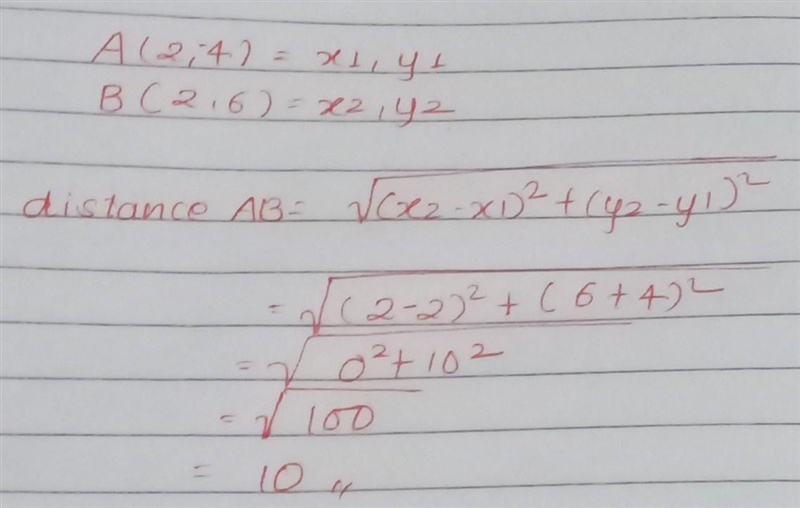 A(2,-4) = x1, y1
B(2,6) = x2, y2
distance AB = √(x2-x1)²+(y2-y1)²
= √(2-2)²+(6+4)²
= √0²+10²
= √100
= 10 〃